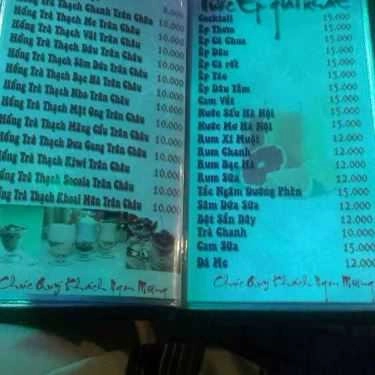 Hồng Trà Thạch Chanh Trân Châu 8.000
Hồng Trà Thạch Me Trân Châu 10.000
Hồng Trà Thạch Vải Trân Châu 10.000
Hồng Trà Thạch Dâu Trân Châu 10.000
Hồng Trà Thạch Sâm Dứa Trân Châu 10.000
Hồng Trà Thạch Bạc Hà Trân Châu 10.000
Hồng Trà Thạch Nho Trân Châu 10.000
Hồng Trà Thạch Mật Ong Trân Châu 10.000
Hồng Trà Thạch Mãng Cầu Trân Châu 10.000
Hồng Trà Thạch Dưa Gang Trân Châu 10.000
Hồng Trà Thạch Kiwi Trân Châu 10.000
Hồng Trà Thạch Socola Trân Châu 10.000
Hồng Trà Thạch Khoai Môn Trân Châu 10.000
Chúc Quý Khách Ngon Miệng
Cocktail 15.000
Ép Thơm 15.000
Ép Cà Chua 15.000
Ép Dâu 15.000
Ép Cà rốt 15.000
Ép Táo 15.000
Ép Dâu Tằm 15.000
Cam Vắt 15.000
Nước Sấu Hà Nội 15.000
Nước Mơ Hà Nội 15.000
Rum Xí Muội 12.000
Rum Chanh 12.000
Rum Bạc Hà 12.000
Rum Sữa 12.000
Tắc Ngâm Đường Phèn 15.000
Sâm Dứa Sữa 12.000
Bột Sắn Dây 12.000
Trà Chanh 10.000
Cam Sữa 15.000
Đá Me 12.000
Chúc Quý Khách Ngon Miệng